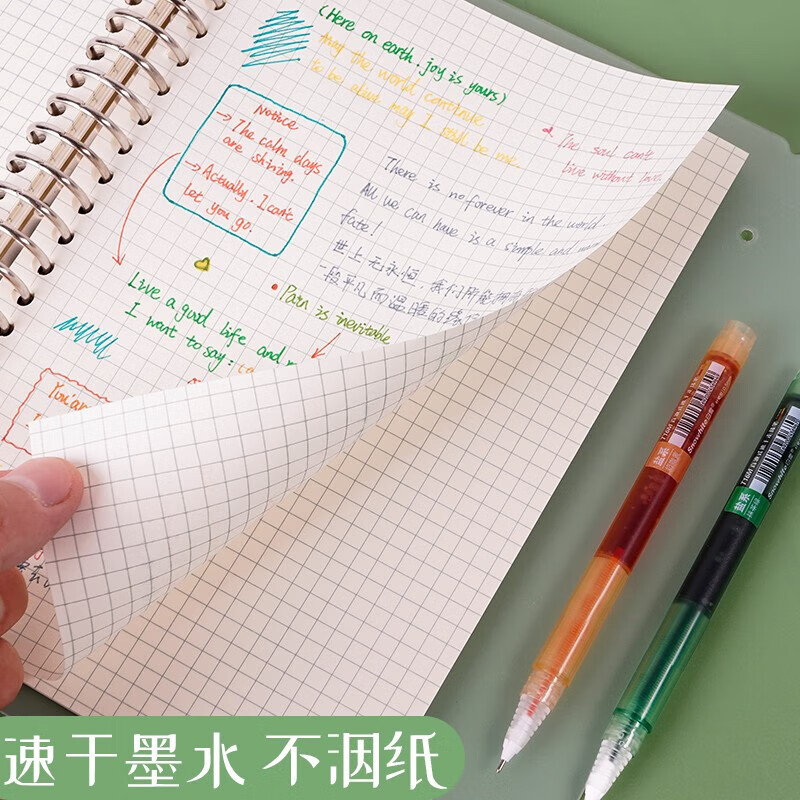 (Here on earth. joy is yours)
may the world continue
to be, alus may I still be me.
Notice
→ The calm days
are shining.
→ Actually. I can't
let you go.
The soul can't
live without love
There is no forever in the world
All we can have is a simple and warm
fate!
世上无永恒.我们所能拥有
一段平凡而温暖的缘
Live a good life and
I want to say:
Pain is inevitable
You'are
盐系
Snowhite
T16M
盐系
Snowhite
T16M
速干墨水 不洇纸